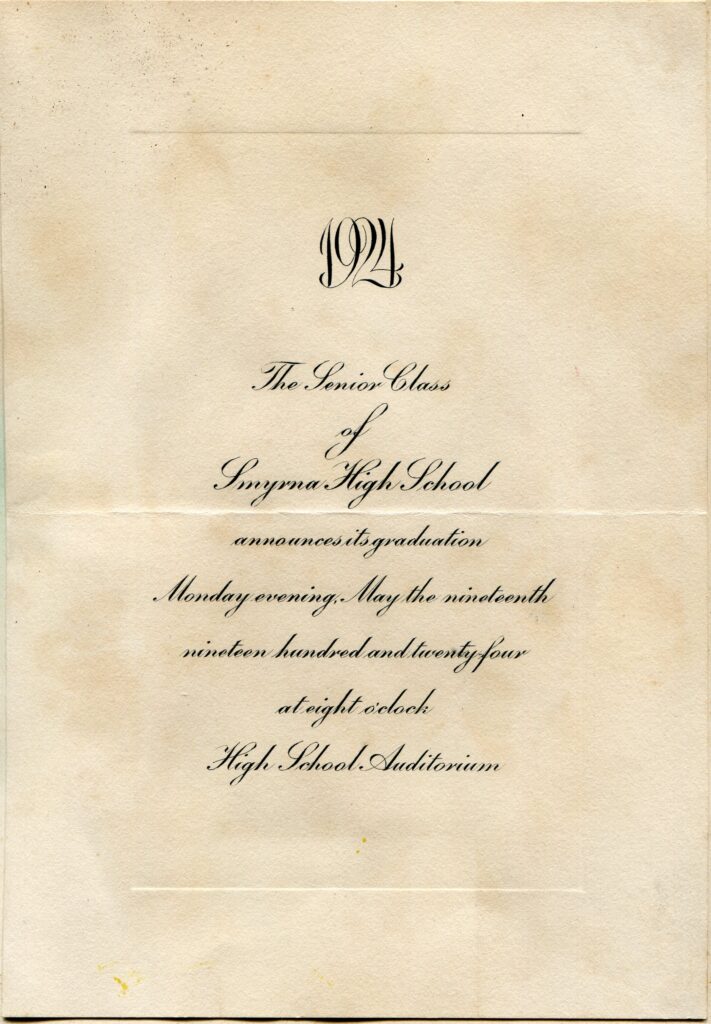 1924
The Senior Class
of
Smyrna High School
announces its graduation
Monday evening, May the nineteenth
nineteen hundred and twenty-four
at eight o'clock
High School Auditorium